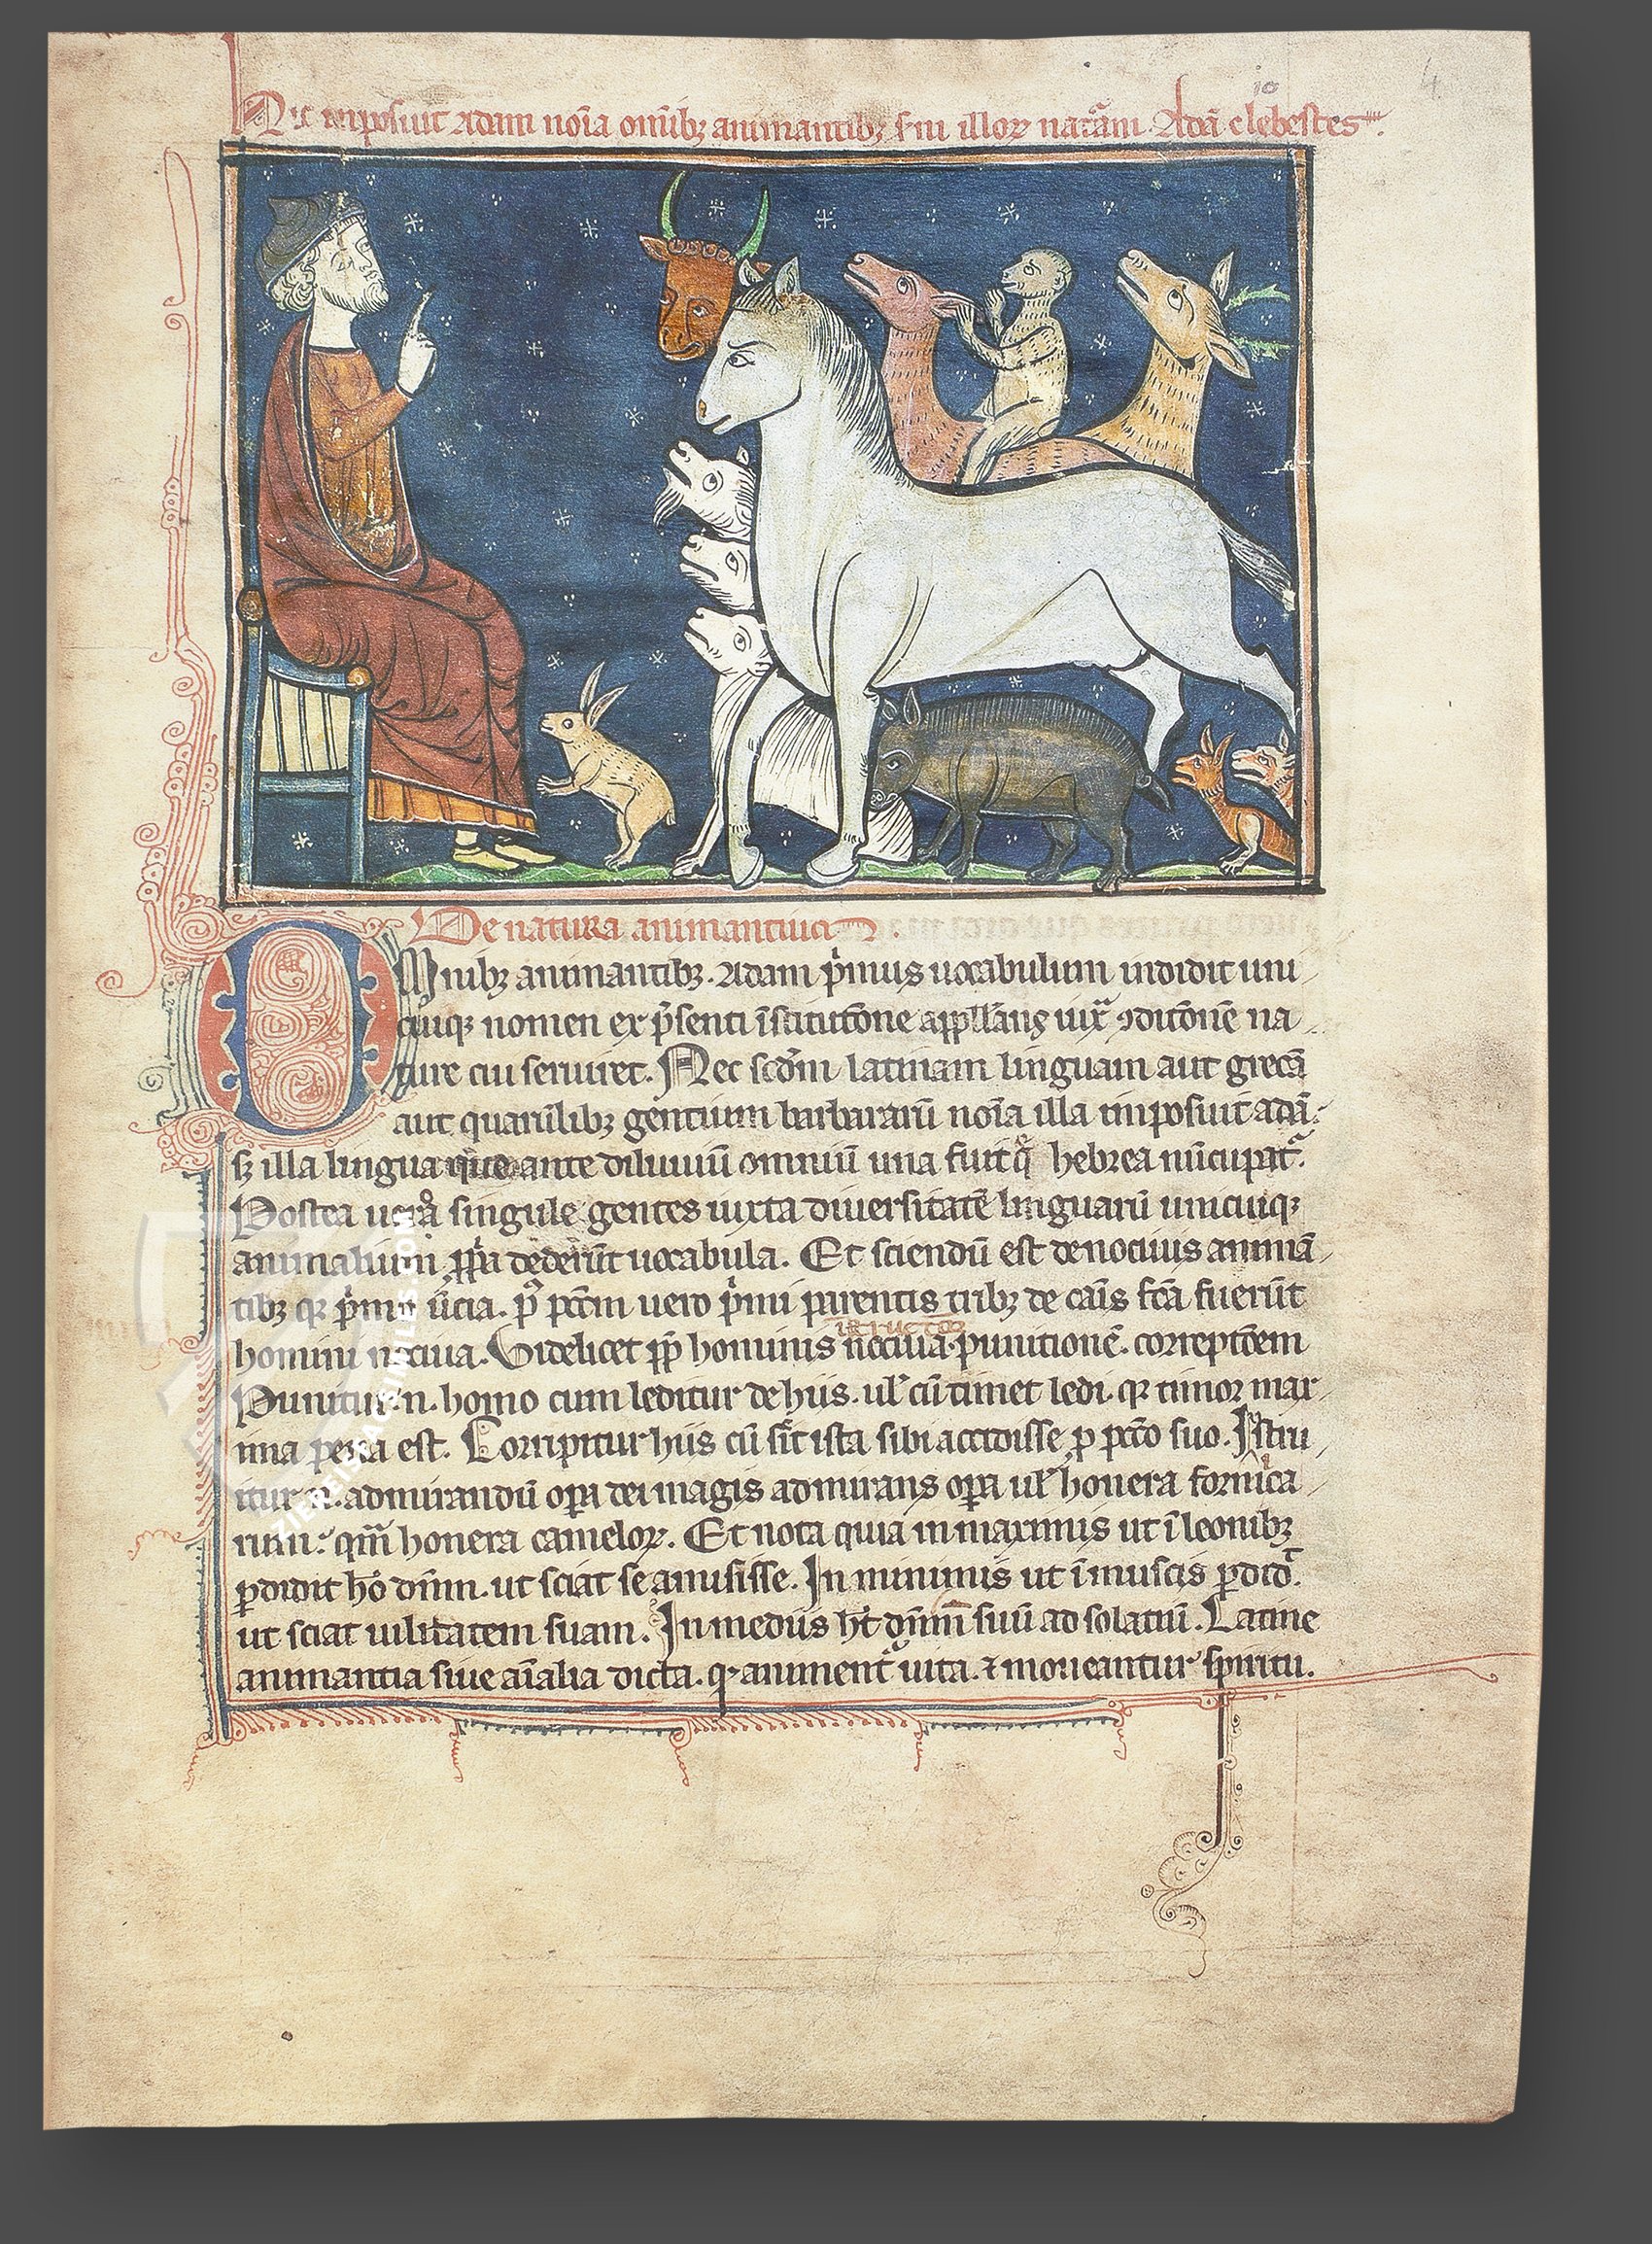 4
io
Hic imposuit adam noīa omībꝫ animantibꝫ sm illoꝝ naturam. Adā
De natura animantium.
Omnibꝫ animantibꝫ. Adam pͥmus uocabulum indidit uni
cuiqꝫ nomen ex p̄senti īstitutōne appell̄ans iuxͣ ꝯditōnē na
ture cui seruiret. Nec scd̄m latinam linguam aut grecā
aut quarūlibꝫ gentium barbararū noīa illa imposuit adā.
sꝫ illa lingua que ante diluuiū omniū una fuit qͣ hebrea nūcupat᷑.
Postea uero singule gentes iuxta diuersitatē linguarū unicuiqꝫ
animalium ꝓpͥa dederūt uocabula. Et sciendū est de nociuis animā
tibꝫ qꝛ pͥmi p̄ pctm̄ uero pͥmi parentis tribꝫ de caīs fcā fuerūt
homini nociua. Videlicet ꝓp̄ hominis nociua punitionē. correptōem
instructōꝫ
Punitur .n. homo cum leditur de hiis. ul̄ cū timet ledi. qꝛ timor max
ima pena est. Corripitur hiis cū scīt ista sibi accidisse ꝓ pctō suo. Istru
itur .n. admirandū opa dei magis admirans opa ul̄ honera formica
rum: qm̄ honera cameloꝝ. Et nota quia in maximis ut ī leonibꝫ
ꝑdidit hō dn̄m. ut sciat se amisisse. In minimis ut ī muscis ꝑdid᷑.
ut sciat uilitatem suam. In mediis ht̄ dn̄m suū ad solatiū. Latine
animantia siue aīalia dicta. qꝛ animent᷑ uita. ⁊ moueantur spiritu.
ZIEREIS FACSIMILES.COM